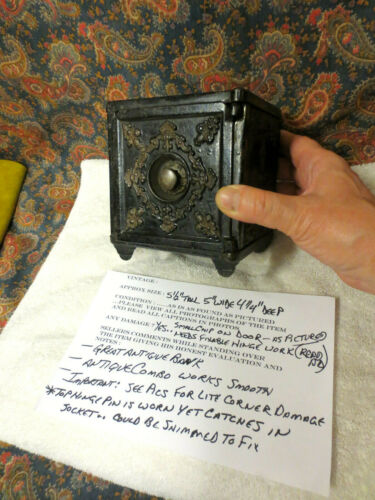 VINTAGE:
APPROX SIZE: 5½" TALL 5" WIDE 4¾" DEEP
CONDITION .....AS IS AS FOUND AS PICTURED
...PLEASE VIEW ALL PHOTOGRAPHS OF THE ITEM
AND READ ALL CAPTIONS IN PHOTOS
ANY DAMAGE: YES.. SMALL CHIP ON DOOR - AS PICTURED
NEEDS FIXABLE HINGE WORK (READ
SELLERS COMMENTS WHILE STANDING OVER
THE ITEM GIVING HIS HONEST EVALUATION AND
NOTES:
- GREAT ANTIQUE BANK
- ANTIQUE COMBO WORKS SMOOTH
- IMPORTANT: SEE PICS FOR LITE CORNER DAMAGE
* TOP HINGE PIN IS WORN YET CATCHES IN
SOCKET.. COULD BE SHIMMED TO FIX